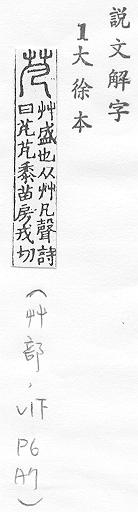 説文解字
1大徐本
芃
艸盛也从艸凡聲詩
曰芃芃黍苗房戎切
(艸部,
V1下
P6
A7)